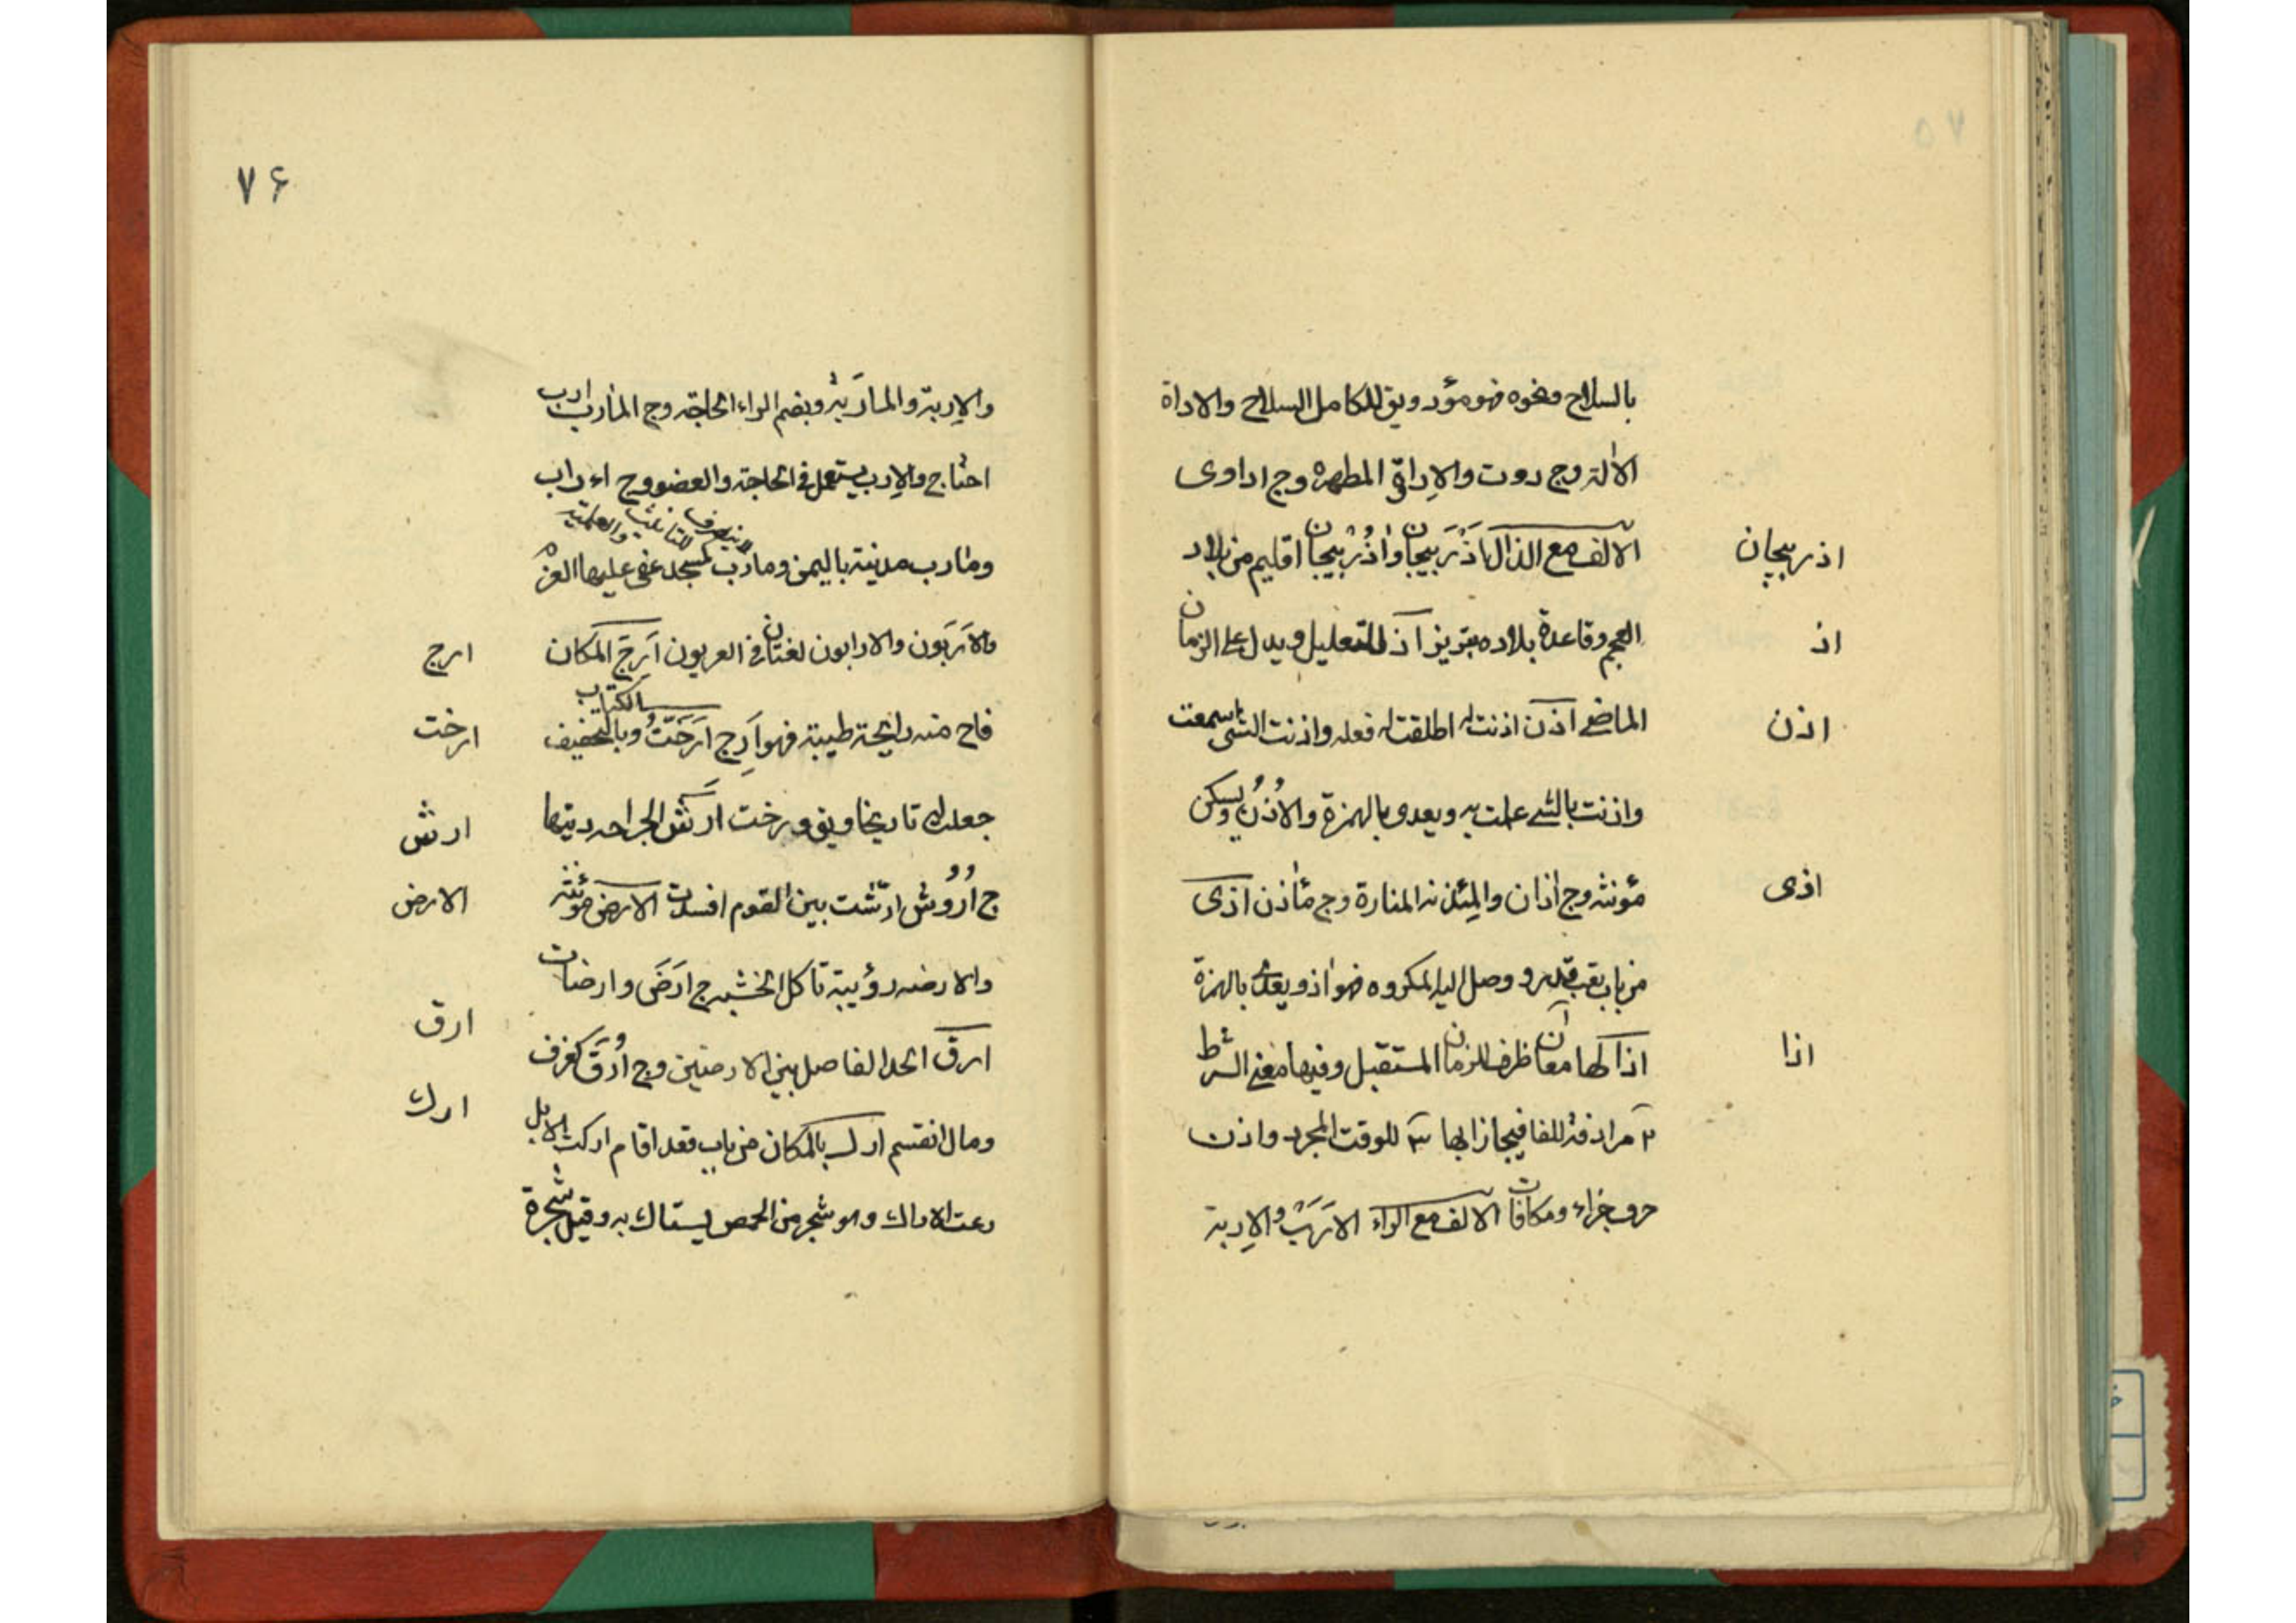 بالسلاح ونحوه فهو مؤد ويق للكامل السلاح والاداة
الآلة وج دوت والإداة المطهرة وج اداوى
اذربيجان
الالف مع الذال اذربيجان واذربيجان اقليم من بلاد
اذ
العجم وقاعدة بلاده تبريز اذ للتعليل ويدل على الزمان
اذن
الماضي اذن اذنت له اطلقت له فعله واذنت الشئ سمعت
واذنت بالشئ علمت به ويعدى بالهمزة والأُذُن ويسكن
اذى
مؤنثه وج اذان والمِئذنه المنارة وج مأذن اذى
من باب تعب وصل اليه المكروه فهو اذ ويعدى بالهمزة
اذا
اذا لها معان آ ظرف للزمان المستقبل وفيها معنى الشرط
٢ مرادفة للفا فيجازا بها ٣ للوقت المجرد واذن
حرف جزاء ومكافات الالف مع الراء الارَب والإربة
٧۶
والإربة والمأرَبة وبضم الراء الحاجة وج المأرب ارب
احتاج والإرب يستعمل في الحاجة والعضو وج اءراب
لا ينصرف للتانيث والعلمية
ومأرب مدينة باليمن ومارب كمسجد
والأَرَبون والاربون لغتان في العربون اَرِجَ المكان
ارج
فاح منه رائحة طيبة فهو اَرِج اَرَّختُ الكتاب وبالتخفيف
ارخت
جعلت له تاريخا ويق ورخت ارش الجراحه ديتها
ارش
ج اُرُوش ارّشت بين القوم افسدت الارض مؤنثه
الارض
والارضه دؤيبة تاكل الخشب ج ارَضَ وارضات
ارق
ارق الحد الفاصل بين الارضين وج اُرَق كغرف
ارك
ومال انقسم ارك بالمكان من باب قعد اقام اركت الابل
رعت الاراك وهو شجر من الحمص يستاك به وقيل شجرة